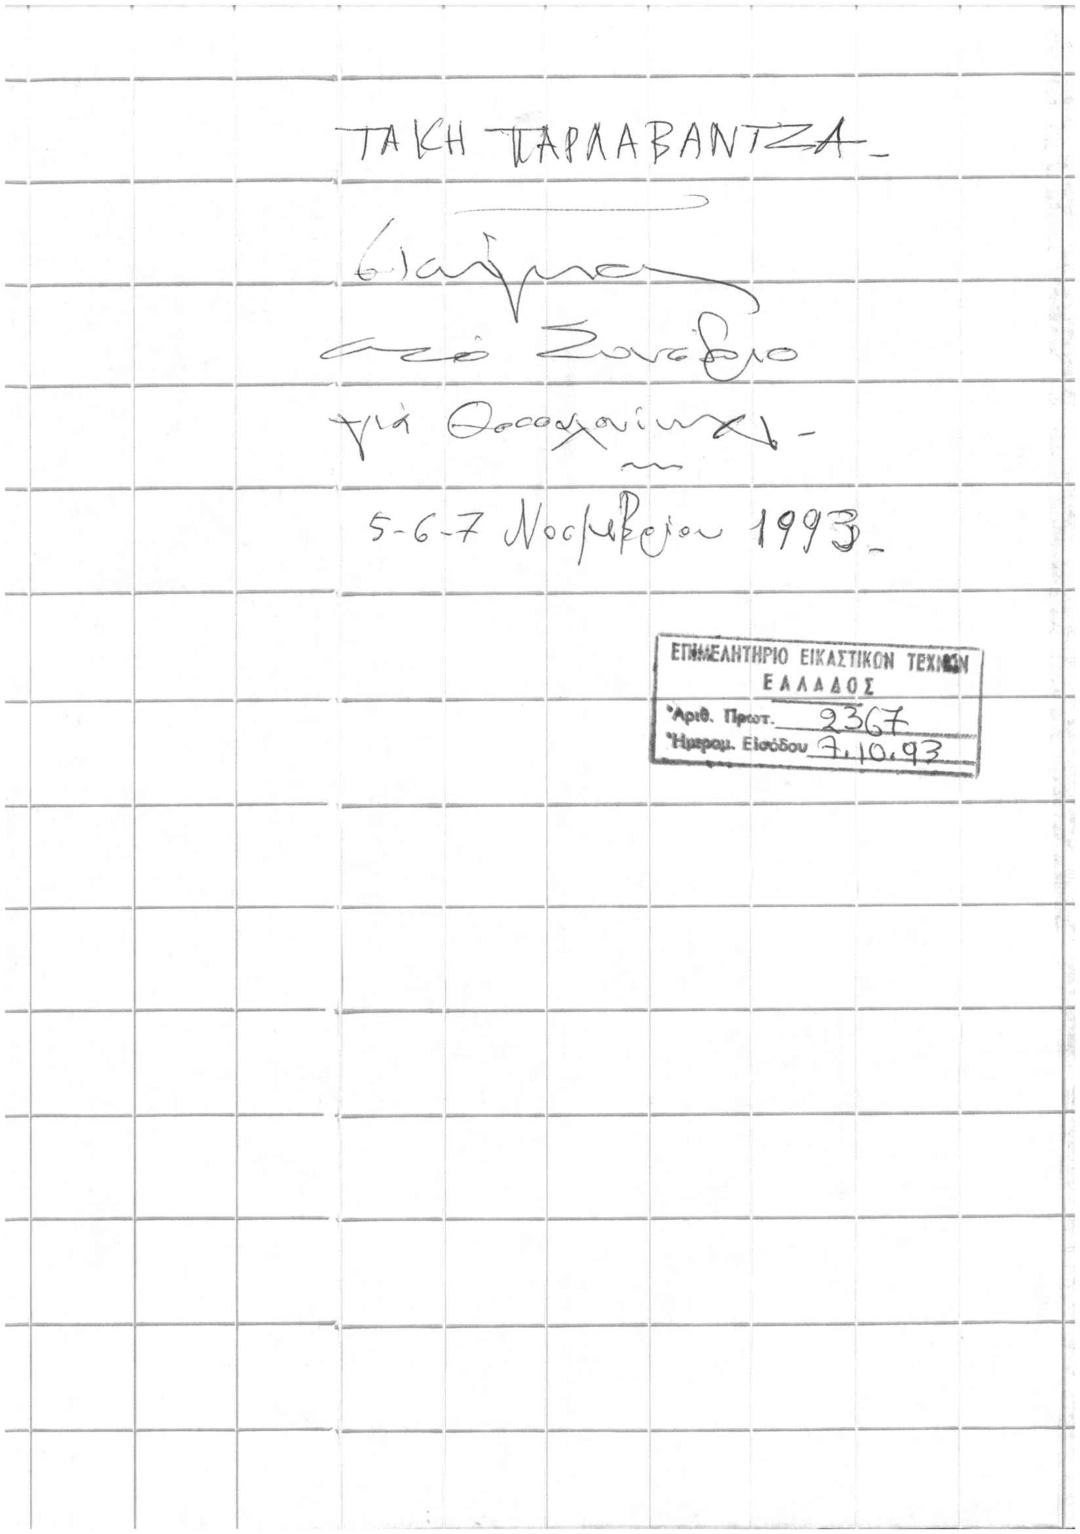 ΤΑΚΗ ΠΑΡΛΑΒΑΝΤΖΑ -
από Συνέδριο
γιά Θεσσαλονίκη. -
5-6-7 Νοεμβρίου 1993 -
ΕΠΙΜΕΛΗΤΗΡΙΟ ΕΙΚΑΣΤΙΚΩΝ ΤΕΧΝΩΝ
ΕΛΛΑΔΟΣ
Ἀριθ. Πρωτ. 2367
Ἡμερομ. Εἰσόδου 7.10.93